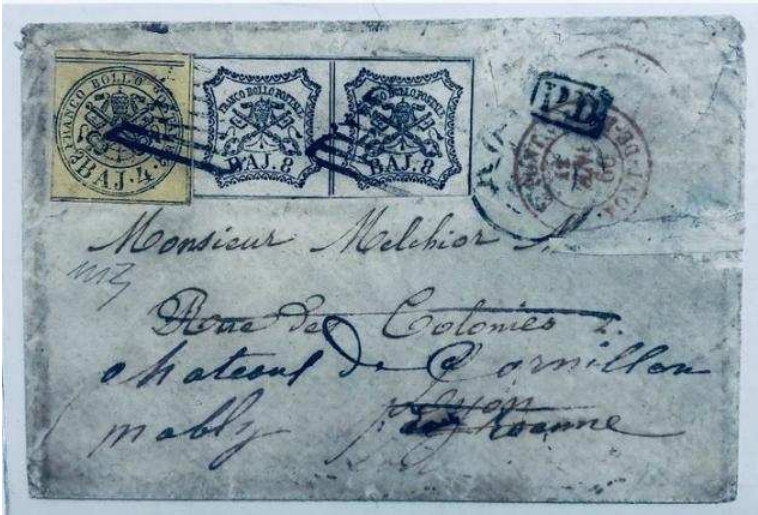 FRANCO BOLLO POSTALE
BAJ. 4.
FRANCO BOLLO POSTALE
BAJ. 8
FRANCO BOLLO POSTALE
BAJ. 8
P.D.
Monsieur Melchior
Rue des Colonies 2.
chateau de Cornillon
Lyon
mably par Roanne